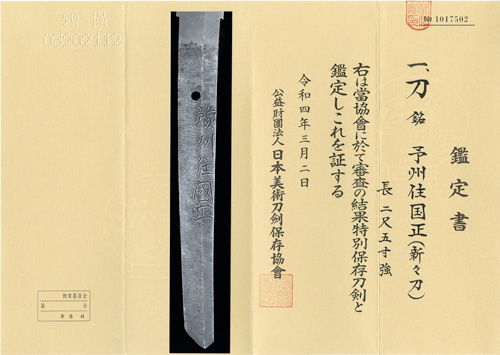 № 1017502
鑑定書
一、刀 銘 予州住国正(新々刀)
長 二尺五寸強
右は當協會に於て審査の結果特別保存刀剣と
鑑定しこれを証する
令和四年三月二日
公益財團法人日本美術刀剣保存協會
豫州住國正
教育委員会
第 号
年 月 日